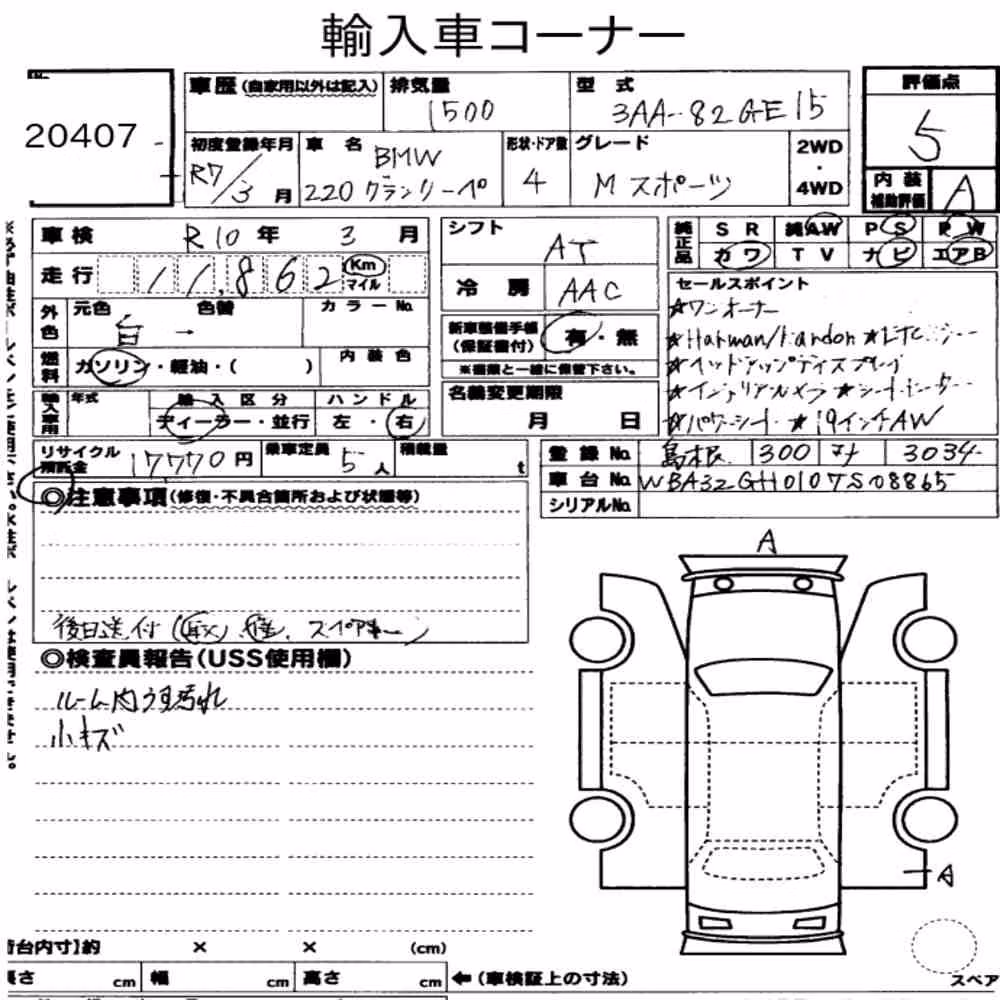 輸入車コーナー
20407
車歴 (自家用以外は記入) 排気量 1500 型式 3AA-82GE15 評価点 5
初度登録年月 R7/3月 車名 BMW 220 グランクーペ 形状・ドア数 4 グレード Mスポーツ 2WD・4WD
内装補助評価 A
車検 R10年 3月
走行 11,862 Km マイル
外色 元色 白 → 色替 カラーNo.
燃料 ガソリン・軽油・( ) 内装色
輸入車用 年式 輸入区分 ディーラー・並行 ハンドル 左・右
リサイクル預託金 17770円 乗車定員 5人 積載量 t
シフト AT
冷房 AAC
新車整備手帳(保証書付) 有・無
※書類と一緒に保管下さい。
名義変更期限 月 日
純正品 SR 純AW PS PW
カワ TV ナビ エアB
セールスポイント
★ワンオーナー
★Harman/Kardon
★ヘッドアップディスプレイ
★シートヒーター
★パワーシート ★19インチAW
登録No. 島根 300 3034
車台No. WBA32GH0107S08865
シリアルNo.
◎注意事項(修復・不具合箇所および状態等)
後日送付(取、スペア
◎検査員報告(USS使用欄)
ルーム内うす汚れ
小キズ
A
A
荷台内寸】約 × × (cm)
長さ cm 幅 cm 高さ cm ←(車検証上の寸法)
スペア